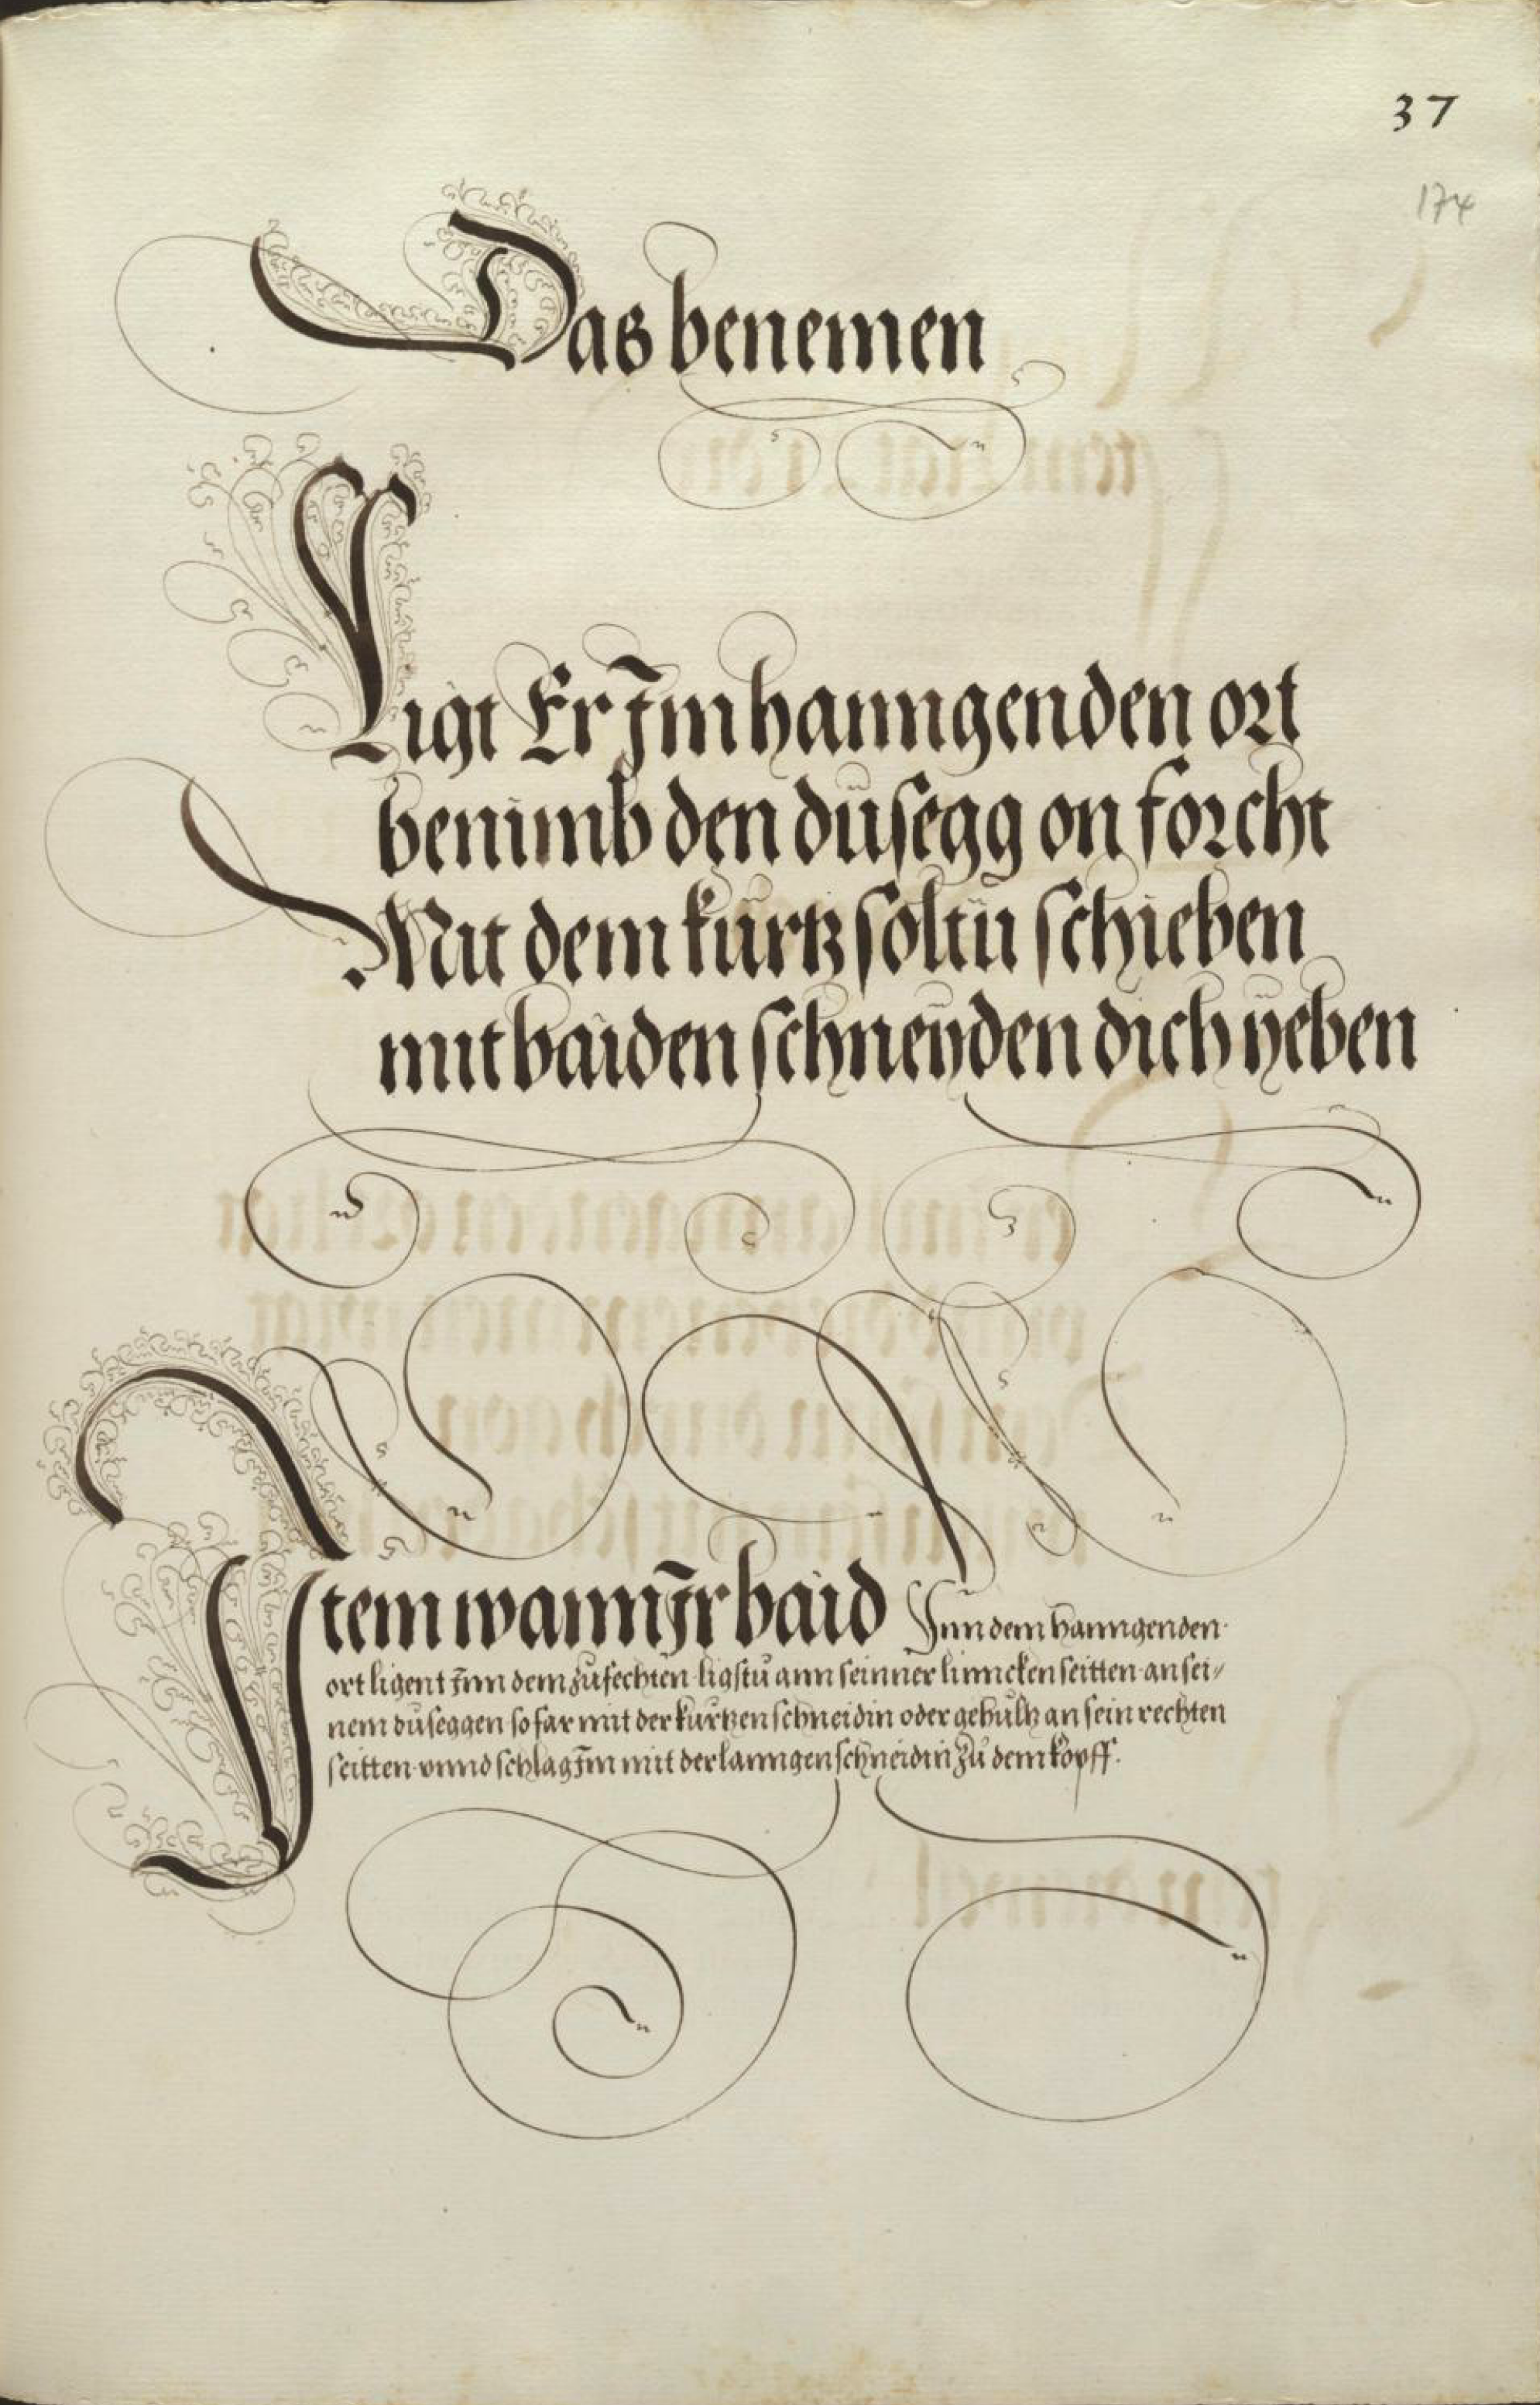 37
174
Das benemen
Ligt Er Im hanngenden ort
benimb den dusegg on forcht
Mit dem kurtz soltu schieben
mit baiden schneyden dich yeben
Item wann Ir baid Inn dem hanngenden
ort ligent Inn dem zufechten ligstu ann seinner linncken seitten an sei/
nem duseggen so far mit der kurtzen schneidin oder gehultz an sein rechten
seitten vnnd schlag Im mit der lanngen schneidin zu dem kopff.